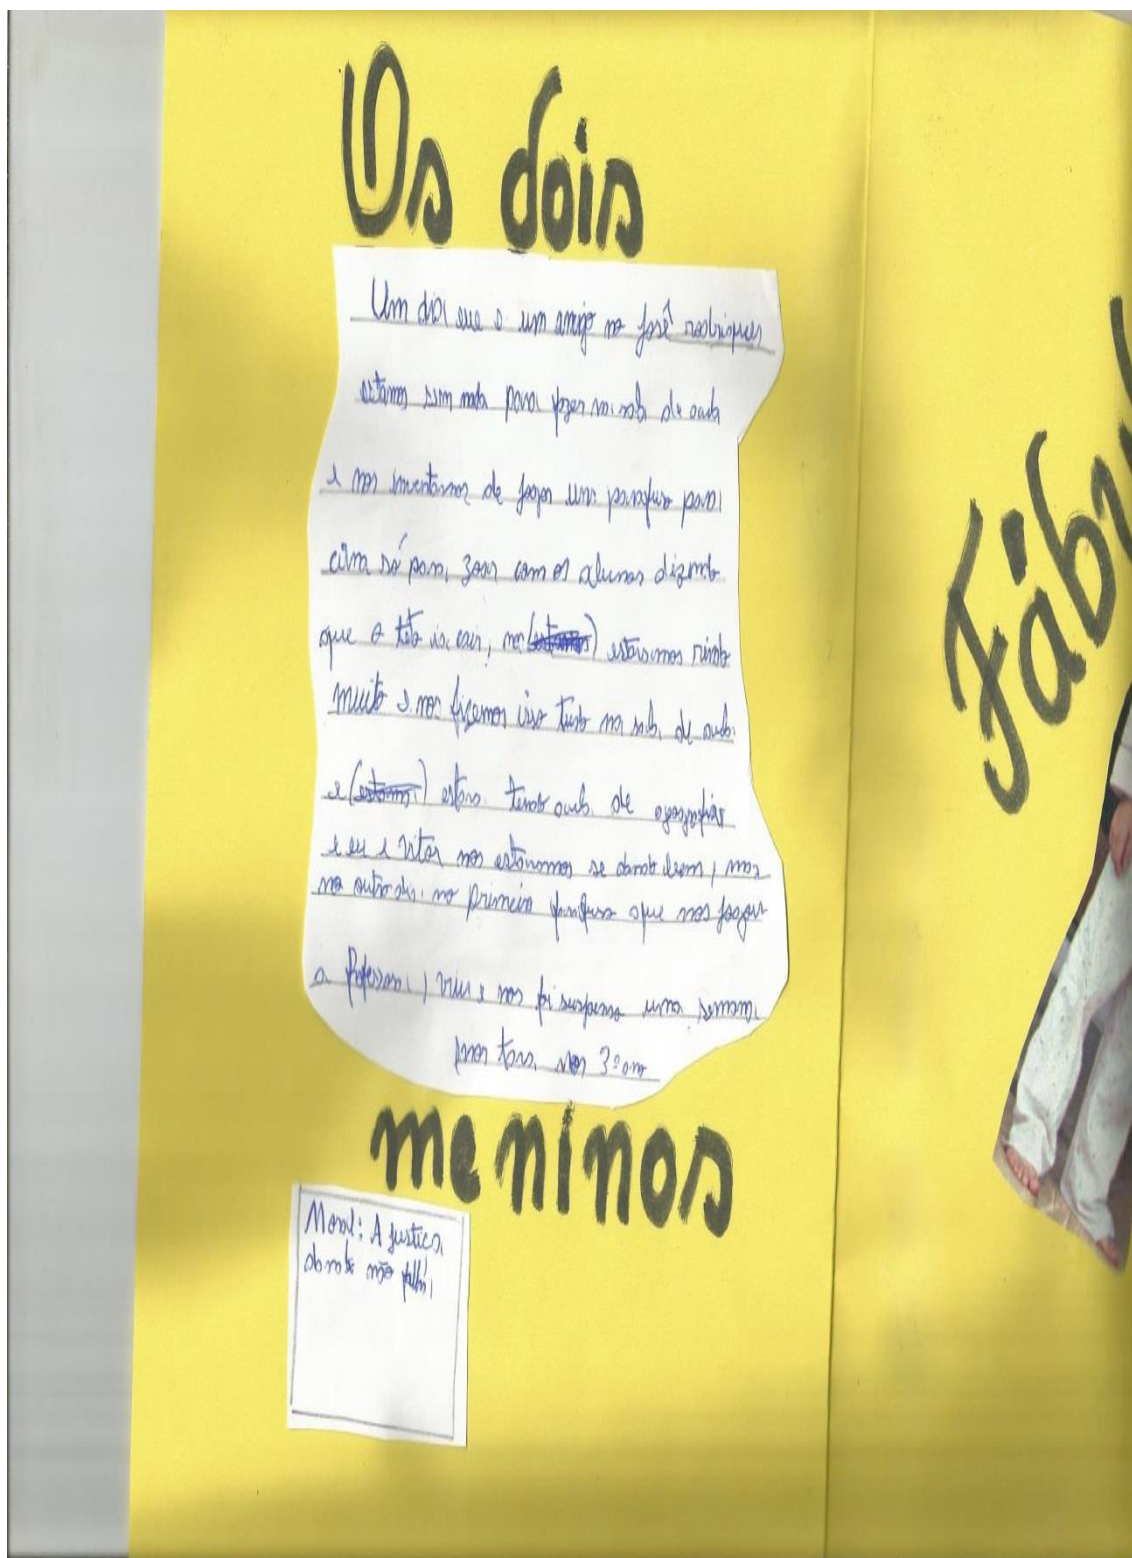 Os dois
Um dia eu e um amigo no José rodrigues
estamos sem nada para fazer na sala de aula
e nos inventamos de jogar um parafuso para
cima só para zoar com os alunos dizendo
que o teto ia cair, nos estavamos rindo
muito e nos fizemos isso tudo na sala de aula
e estava tendo aula de geografia
e eu e Vitor nos estavamos se dando bem, mas
no outro dia no primeiro parafuso que nos jogou
a professora, viu e nos foi suspenso uma semana
3º ano
meninos
Moral: A justiça
tarda não falha
Fábu